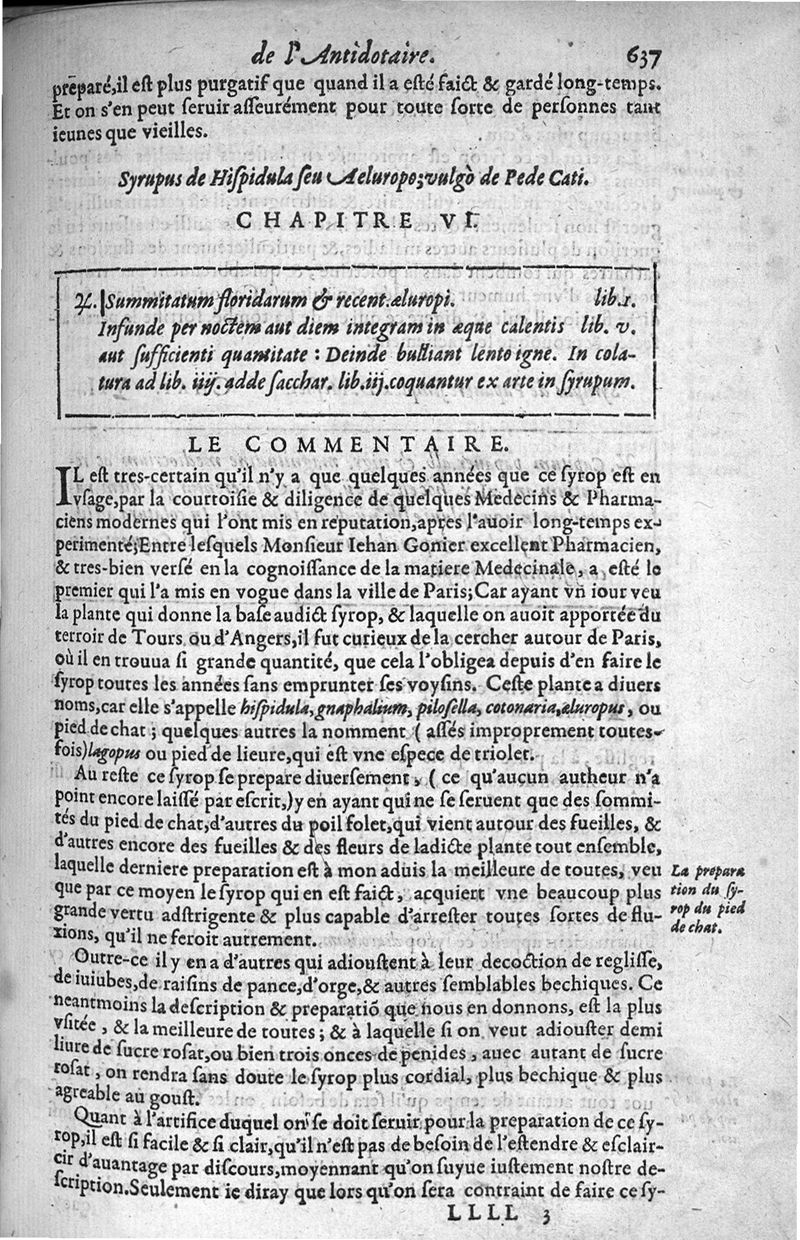 de l'Antidotaire. 637
prẽparé, il est plus purgatif que quand il a esté faict & gardé long-temps.
Et on s'en peut seruir asseurément pour toute sorte de personnes tant
ieunes que vieilles.
Syrupus de Hispidula seu Aeluropo; vulgò de Pede Cati.
CHAPITRE VI.
♃. Summitatum floridarum & recent. æluropi. lib. 1.
Infunde per noctem aut diem integram in æque calentis lib. v.
aut sufficienti quantitate : Deinde bulliant lento igne. In cola-
tura ad lib. iiij. adde sacchar. lib. iij. coquantur ex arte in syrupum.
LE COMMENTAIRE.
IL est tres-certain qu'il n'y a que quelques années que ce syrop est en
vsage, par la courtoisie & diligence de quelques Medecins & Pharma-
ciens modernes qui l'ont mis en reputation, apres l'auoir long-temps ex-
perimenté; Entre lesquels Monsieur Iehan Gonier excellent Pharmacien,
& tres-bien versé en la cognoissance de la matiere Medecinale, a esté le
premier qui l'a mis en vogue dans la ville de Paris; Car ayant vn iour veu
la plante qui donne la base audict syrop, & laquelle on auoit apportée du
terroir de Tours ou d'Angers, il fut curieux de la cercher autour de Paris,
où il en trouua si grande quantité, que cela l'obligea depuis d'en faire le
syrop toutes les années sans emprunter ses voysins. Ceste plante a diuers
noms, car elle s'appelle hispidula, gnaphalium, pilosella, cotonaria, æluropus, ou
pied de chat ; quelques autres la nomment ( assés improprement toutes-
fois) lagopus ou pied de lieure, qui est vne espece de triolet.
Au reste ce syrop se prepare diuersement, ( ce qu'aucun autheur n'a
point encore laissé par escrit,) y en ayant qui ne se seruent que des sommi-
tés du pied de chat, d'autres du poil folet, qui vient autour des fueilles, &
d'autres encore des fueilles & des fleurs de ladicte plante tout ensemble,
laquelle derniere preparation est à mon aduis la meilleure de toutes, veu
que par ce moyen le syrop qui en est faict, acquiert vne beaucoup plus
grande vertu adstrigente & plus capable d'arrester toutes sortes de flu-
xions, qu'il ne feroit autrement.
La prepara
tion du sy-
rop du pied
de chat.
Outre-ce il y en a d'autres qui adioustent à leur decoction de reglisse,
de iuiubes, de raisins de pance, d'orge, & autres semblables bechiques. Ce
neantmoins la description & preparatiõ que nous en donnons, est la plus
vsitée, & la meilleure de toutes ; & à laquelle si on veut adiouster demi
liure de sucre rosat, ou bien trois onces de penides, auec autant de sucre
rosat, on rendra sans doute le syrop plus cordial, plus bechique & plus
agreable au goust.
Quant à l'artifice duquel on se doit seruir pour la preparation de ce sy-
rop, il est si facile & si clair, qu'il n'est pas de besoin de l'estendre & esclair-
cir d'auantage par discours, moyennant qu'on suyue iustement nostre de-
scription. Seulement ie diray que lors qu'on sera contraint de faire ce sy-
LLLL 3